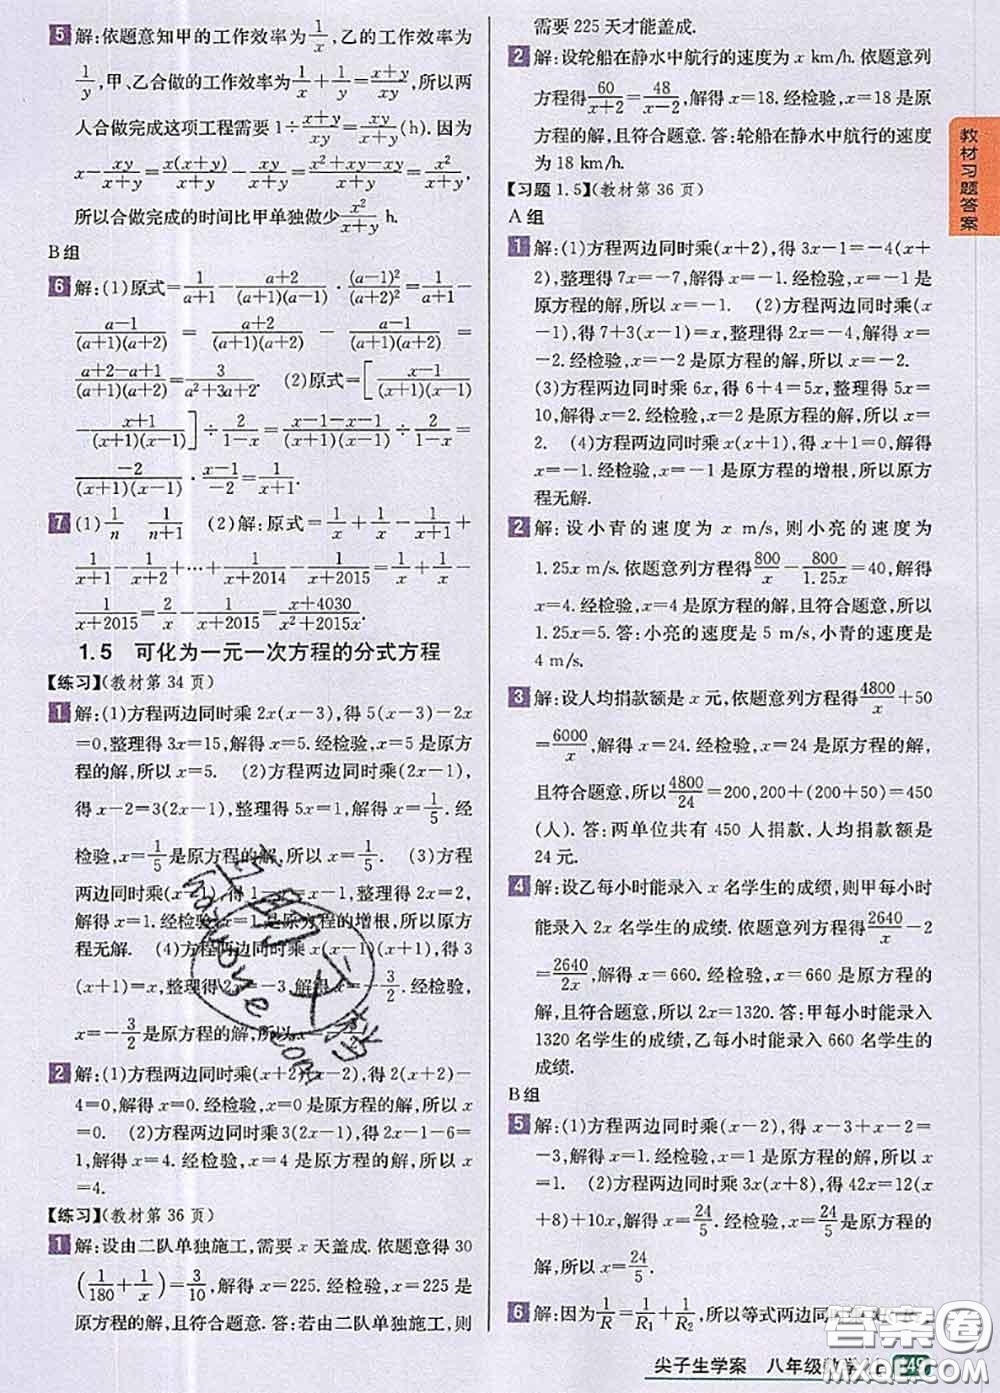 5 解:依题意知甲的工作效率为1/x,乙的工作效率为
1/y,甲、乙合做的工作效率为1/x+1/y=(x+y)/(xy),所以两
人合做完成这项工程需要1÷(x+y)/(xy)=xy/(x+y)(h).因为
x-xy/(x+y)=x(x+y)/(x+y)-xy/(x+y)=(x²+xy-xy)/(x+y)=x²/(x+y),
所以合做完成的时间比甲单独做少x²/(x+y) h.
B组
6 解:(1)原式=1/(a+1)-(a+2)/((a+1)(a-1))·(a-1)²/(a+2)²=1/(a+1)-
(a-1)/((a+1)(a+2))=(a+2)/((a+1)(a+2))-(a-1)/((a+1)(a+2))=
(a+2-a+1)/((a+1)(a+2))=3/(a²+3a+2). (2)原式=[(x-1)/((x+1)(x-1))-
(x+1)/((x+1)(x-1))]÷2/(1-x)=(x-1-x-1)/((x+1)(x-1))÷2/(1-x)=
-2/((x+1)(x-1))·(x-1)/(-2)=1/(x+1).
7 (1)1/n 1/(n+1) (2)解:原式=1/x+1/x-1/(x+1)+
1/(x+1)-1/(x+2)+…+1/(x+2014)-1/(x+2015)=1/x+1/x-
1/(x+2015)=2/x-1/(x+2015)=(x+4030)/(x²+2015x).
1.5 可化为一元一次方程的分式方程
【练习】(教材第34页)
1 解:(1)方程两边同时乘2x(x-3),得5(x-3)-2x
=0,整理得3x=15,解得x=5.经检验,x=5是原方
程的解,所以x=5. (2)方程两边同时乘(2x-1),
得x-2=3(2x-1),整理得5x=1,解得x=1/5.经
检验,x=1/5是原方程的解,所以x=1/5. (3)方程
两边同时乘(x-1),得x-1+1=0,整理得x=1,解得
x=1.经检验,x=1是原方程的增根,所以原方
程无解. (4)方程两边同时乘(x-1)(x+1),得3
(x+1)=x,整理得2x=-3,解得x=-3/2.经检验,
x=-3/2是原方程的解,所以x=-3/2.
2 解:(1)方程两边同时乘(x+2)(x-2),得2(x+2)-
4=0,解得x=0.经检验,x=0是原方程的解,所以x
=0. (2)方程两边同时乘3(2x-1),得2x-1-6
=1,解得x=4.经检验,x=4是原方程的解,所以x
=4.
【练习】(教材第36页)
1 解:设由二队单独施工,需要x天盖成.依题意得30
(1/180+1/x)=3/10,解得x=225.经检验,x=225是
原方程的解,且符合题意.答:若由二队单独施工,则
需要225天才能盖成.
2 解:设轮船在静水中航行的速度为x km/h.依题意列
方程得60/(x+2)=48/(x-2),解得x=18.经检验,x=18是原
方程的解,且符合题意.答:轮船在静水中航行的速度
为18 km/h.
【习题1.5】(教材第36页)
A组
1 解:(1)方程两边同时乘(x+2),得3x-1=-4(x+
2),整理得7x=-7,解得x=-1.经检验,x=-1是
原方程的解,所以x=-1. (2)方程两边同时乘(x
-1),得7+3(x-1)=x,整理得2x=-4,解得x=
-2.经检验,x=-2是原方程的解,所以x=-2.
(3)方程两边同时乘6x,得6+4=5x,整理得5x=
10,解得x=2.经检验,x=2是原方程的解,所以x=
2. (4)方程两边同时乘x(x+1),得x+1=0,解得
x=-1.经检验,x=-1是原方程的增根,所以原方
程无解.
2 解:设小青的速度为x m/s,则小亮的速度为
1.25x m/s.依题意列方程得800/x-800/(1.25x)=40,解得x
=4.经检验,x=4是原方程的解,且符合题意,所以
1.25x=5.答:小亮的速度是5 m/s,小青的速度是
4 m/s.
3 解:设人均捐款额是x元,依题意列方程得4800/x+50
=6000/x,解得x=24.经检验,x=24是原方程的解,
且符合题意,所以4800/24=200,200+(200+50)=450
(人).答:两单位共有450人捐款,人均捐款额是
24元.
4 解:设乙每小时能录入x名学生的成绩,则甲每小时
能录入2x名学生的成绩.依题意列方程得2640/x-2
=2640/2x,解得x=660.经检验,x=660是原方程的
解,且符合题意,所以2x=1320.答:甲每小时能录入
1320名学生的成绩,乙每小时能录入660名学生的
成绩.
B组
5 解:(1)方程两边同时乘(x-2),得x-3+x-2=
-3,解得x=1.经检验,x=1是原方程的解,所以x
=1. (2)方程两边同时乘3x(x+8),得42x=12(x
+8)+10x,解得x=24/5.经检验,x=24/5是原方程的
解,所以x=24/5.
6 解:因为1/R=1/R₁+1/R₂,所以等式两边同
教材习题答案
尖子生学案 八年级数学
答案圈